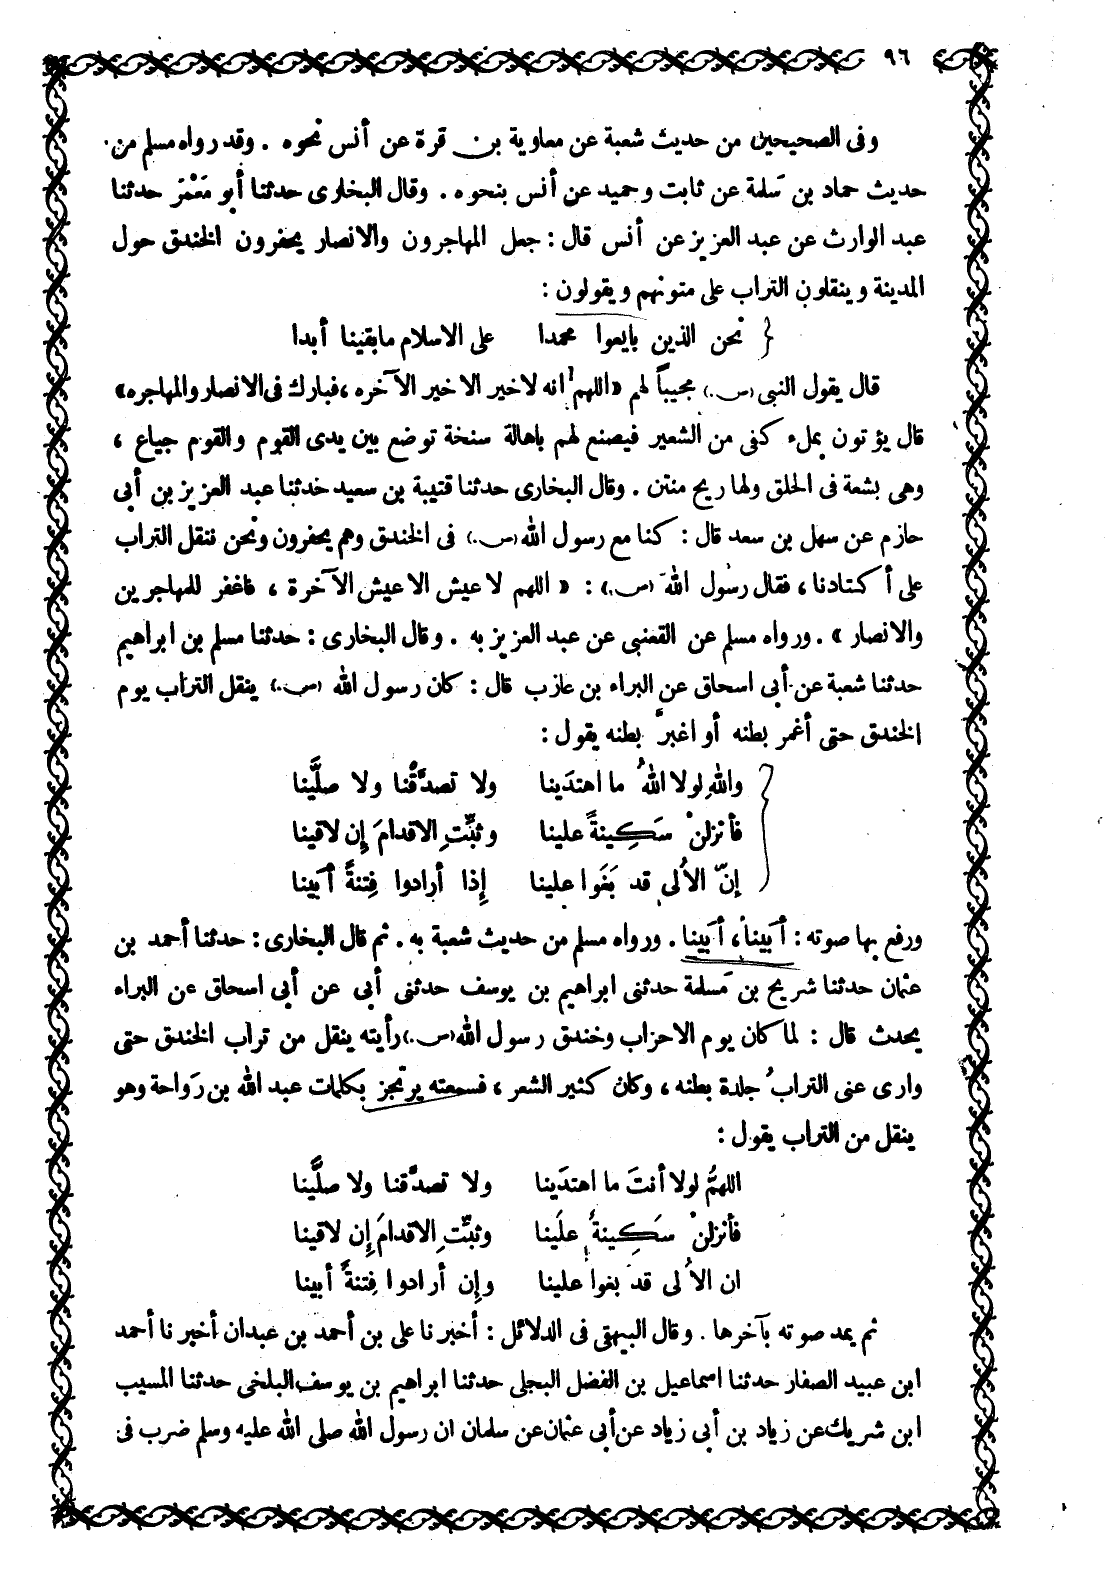 ٩٦
وفى الصحيحين من حديث شعبة عن معاوية بن قرة عن أنس نحوه . وقد رواه مسلم من
حديث حماد بن سَلمة عن ثابت وحميد عن أنس بنحوه . وقال البخارى حدثنا أبو مَعْمَر حدثنا
عبد الوارث عن عبد العزيز عن أنس قال : جعل المهاجرون والانصار يحفرون الخندق حول
المدينة وينقلون التراب على متونهم ويقولون :
نحن الذين بايعوا محمدا على الاسلام مابقينا أبدا
قال يقول النبى (س.) مجيباً لهم «اللهم انه لاخير الاخير الآخره ، فبارك فى الانصار والمهاجره»
قال يؤتون بملء كفى من الشعير فيصنع لهم باهالة سنخة توضع بين يدى القوم والقوم جياع ،
وهى بشعة فى الحلق ولها ريح منتن . وقال البخارى حدثنا قتيبة بن سعيد حدثنا عبد العزيز بن أبى
حازم عن سهل بن سعد قال : كنا مع رسول الله (س.) فى الخندق وهم يحفرون ونحن ننقل التراب
على أكتادنا ، فقال رسول الله (س.) : « اللهم لا عيش الا عيش الآخرة ، فاغفر للمهاجرين
والانصار » . ورواه مسلم عن القعنبى عن عبد العزيز به . وقال البخارى : حدثنا مسلم بن ابراهيم
حدثنا شعبة عن أبى اسحاق عن البراء بن عازب قال : كان رسول الله (س.) ينقل التراب يوم
الخندق حتى أغمر بطنه أو اغبرّ بطنه يقول :
واللهِ لولا اللهُ ما اهتدَينا ولا تصدَّقُنا ولا صلَّينا
فأنزلنْ سَكِينةً علينا وثبِّتِ الاقدامَ إن لاقينا
إنّ الاُلى قد بَغَوا علينا إذا أرادوا فِتنةً أبَينا
ورفع بها صوته : أبَينا ، أبَينا . ورواه مسلم من حديث شعبة به . ثم قال البخارى : حدثنا أحمد بن
عثمان حدثنا شريح بن مَسلمة حدثنى ابراهيم بن يوسف حدثنى أبى عن أبى اسحاق عن البراء
يحدث قال : لما كان يوم الاحزاب وخندق رسول الله (س.) رأيته ينقل من تراب الخندق حتى
وارى عنى الترابُ جلدة بطنه ، وكان كثير الشعر ، فسمعته يرتجز بكلمات عبد الله بن رَواحة وهو
ينقل من التراب يقول :
اللهمُّ لولا أنتَ ما اهتدَينا ولا تصدَّقنا ولا صلَّينا
فأنزلنْ سَكِينةً علَينا وثبِّتِ الاقدامَ إن لاقينا
ان الاُلى قد بغوا علينا وإن أرادوا فِتنةً أبينا
ثم يمد صوته بآخرها . وقال البيهقى فى الدلائل : أخبرنا على بن أحمد بن عبدان أخبرنا أحمد
ابن عبيد الصفار حدثنا اسماعيل بن الفضل البجلى حدثنا ابراهيم بن يوسف البلخى حدثنا المسيب
ابن شريك عن زياد بن أبى زياد عن أبى عثمان عن سلمان ان رسول الله صلى الله عليه وسلم ضرب فى